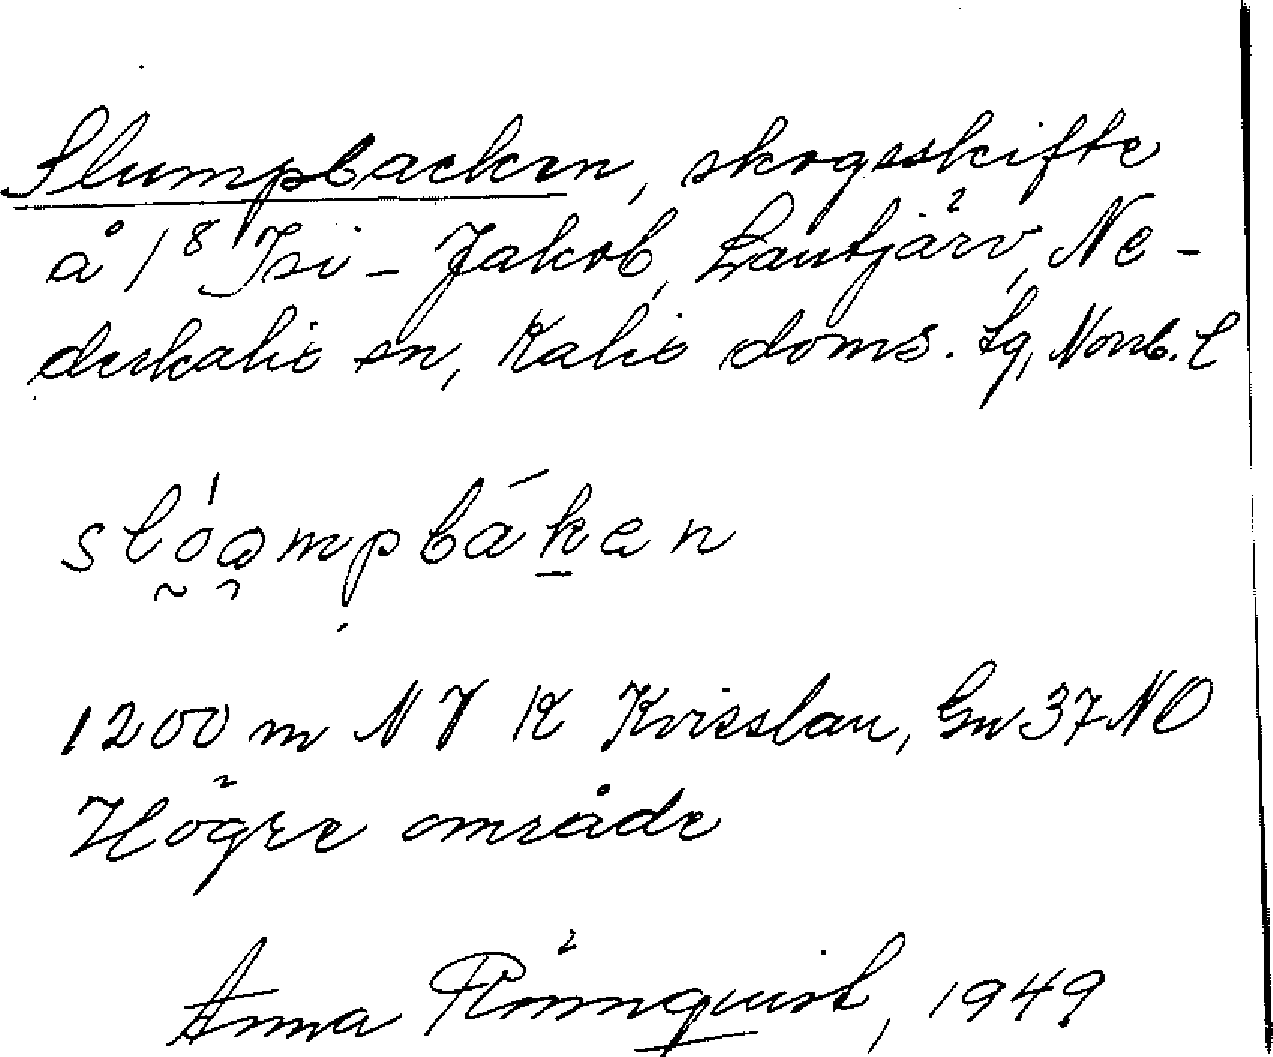 Slumpbacken, skogsskifte
å 1⁸ Isi-Jakob, Lantjärv, Ne-
derkalix sn, Kalix doms. tg, Norrb. l
slóampbáken
1200 m NV k Kvisslan, Gn 37 NO
Högre område
Anna Rönnquist, 1949